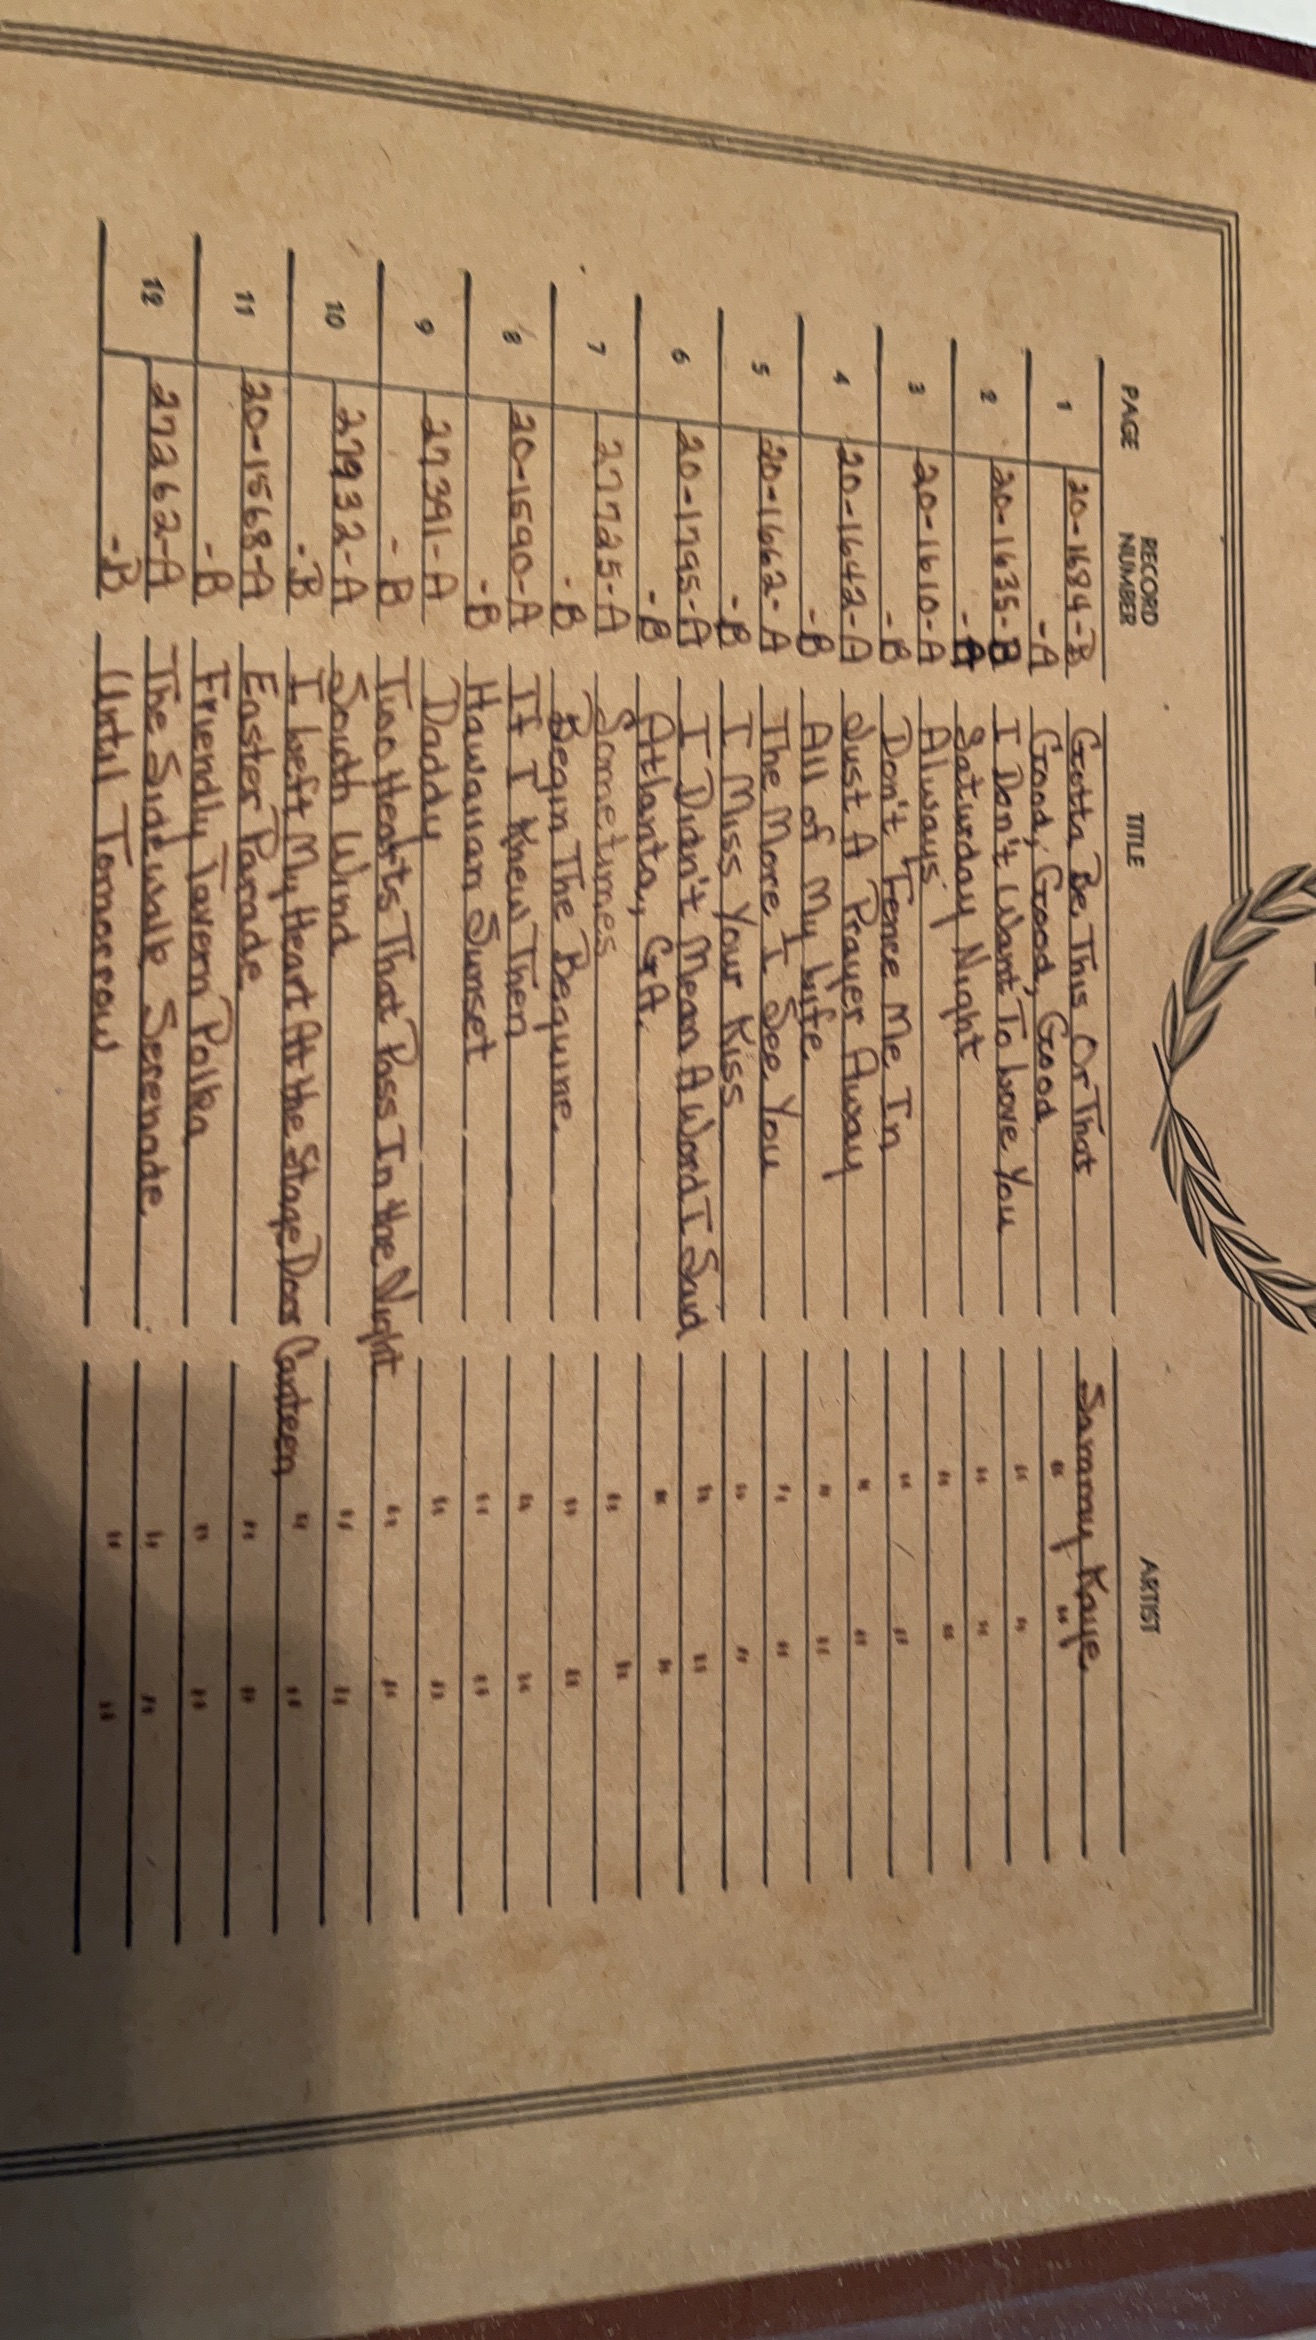 PAGE RECORD NUMBER TITLE ARTIST
1 20-1684-B Gotta Be This Or That Sammy Kaye
-A Good, Good, Good, Good " "
2 20-1635-B I Don't Want To Love You " "
-A Saturday Night " "
3 20-1610-A Always " "
-B Don't Fence Me In " "
4 20-1642-A Just A Prayer Away " "
-B All of My Life " "
5 20-1662-A The More I See You " "
-B I Miss Your Kiss " "
6 20-1795-A I Didn't Mean A Word I Said " "
-B Atlanta, GA. " "
7 27725-A Sometimes " "
-B Begin The Beguine " "
8 20-1590-A If I Knew Then " "
-B Hawaiian Sunset " "
9 27391-A Daddy " "
-B Two Hearts That Pass In the Night " "
10 27932-A South Wind " "
-B I Left My Heart At the Stage Door Canteen " "
11 20-1568-A Easter Parade " "
-B Friendly Tavern Polka " "
12 27262-A The Sidewalk Serenade " "
-B Until Tomorrow " "